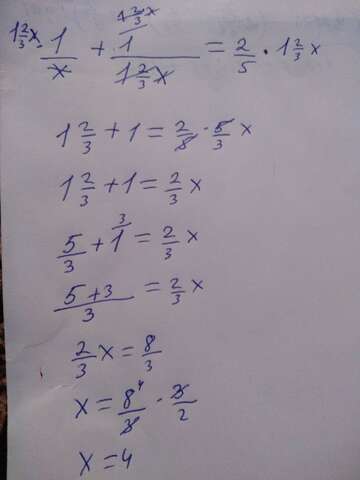 1 2/3 x · 1/x + (1 2/3 x · 1)/(1 2/3 x) = 2/5 · 1 2/3 x
1 2/3 + 1 = 2/5 · 5/3 x
1 2/3 + 1 = 2/3 x
5/3 + 1 3 = 2/3 x
(5+3)/3 = 2/3 x
2/3 x = 8/3
x = 8 4 /3 · 3/2
x = 4